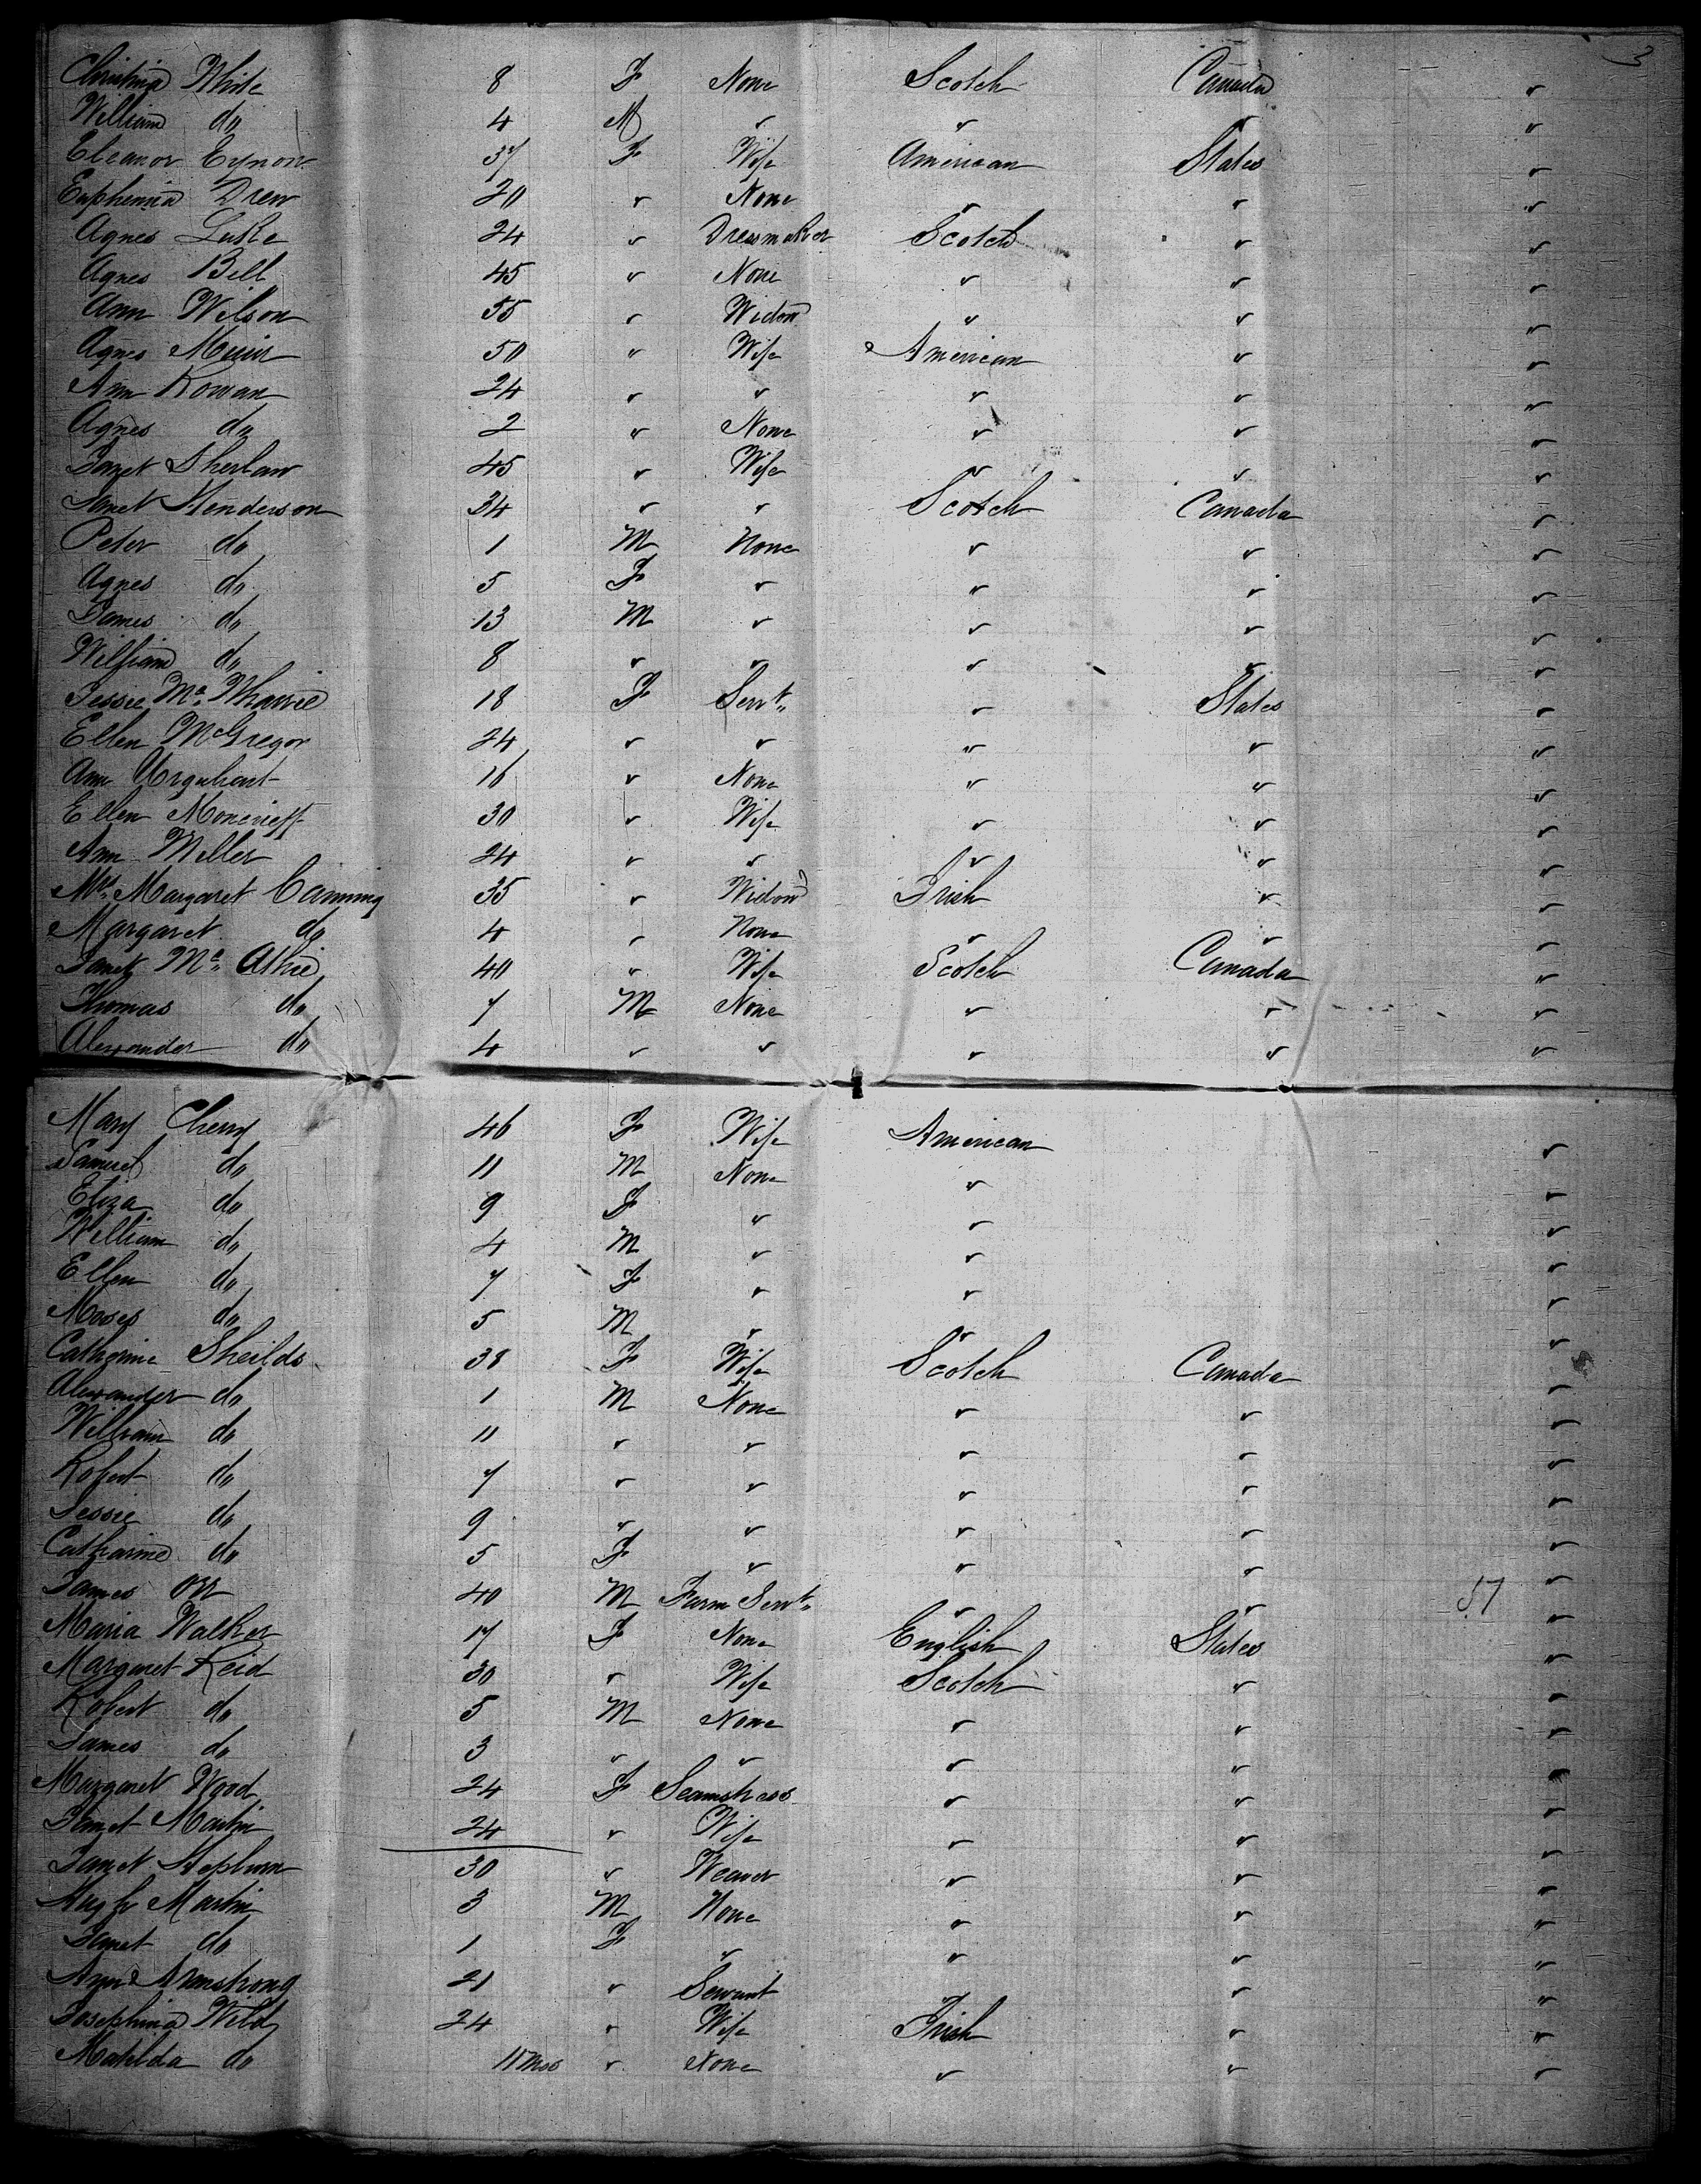 3
Christina White 8 F None Scotch Canada "
William do 4 M " " " "
Eleanor Eynon 37 F Wife American States "
Euphemia Drew 20 " None " " "
Agnes Luske 24 " Dressmaker Scotch " "
Agnes Bell 45 " None " " "
Ann Wilson 55 " Widow " " "
Agnes Muir 50 " Wife American " "
Ann Rowan 24 " " " " "
Agnes do 2 " None " " "
Janet Sherlaw 45 " Wife " " "
Janet Henderson 34 " " Scotch Canada "
Peter do 1 M None " " "
Agnes do 5 F " " " "
James do 13 M " " " "
William do 8 " " " " "
Jessie Mc Wharrie 18 F Servt " States "
Ellen McGregor 24 " " " " "
Ann Urquhart 16 " None " " "
Ellen Moncrieff 30 " Wife " " "
Ann Miller 24 " " " " "
Mrs Margaret Canning 35 " Widow Irish " "
Margaret do 4 " None " " "
Janet Mc Athie 40 " Wife Scotch Canada "
Thomas do 7 M None " " "
Alexander do 4 " " " " "
Mary Cherry 46 F Wife American "
Samuel do 11 M None " "
Eliza do 9 F " " "
William do 4 M " " "
Ellen do 7 F " " "
Moses do 5 M " " "
Catherine Sheilds 38 F Wife Scotch Canada "
Alexander do 1 M None " " "
William do 11 " " " " "
Robert do 7 " " " " "
Jessie do 9 " " " " "
Catharine do 5 F " " " "
James Orr 40 M Farm Servt " " 57 "
Maria Walker 17 F None English States "
Margaret Reid 30 " Wife Scotch " "
Robert do 5 M None " " "
James do 3 " " " " "
Margaret Wood 24 F Seamstress " " "
Janet Martin 24 " Wife " " "
Janet Hepburn 30 " Weaver " " "
Hugh Martin 3 M None " " "
Janet do 1 F " " " "
Ann Armstrong 21 " Servant " " "
Josephina Wild 24 " Wife Irish " "
Matilda do 11 mos " None " " "